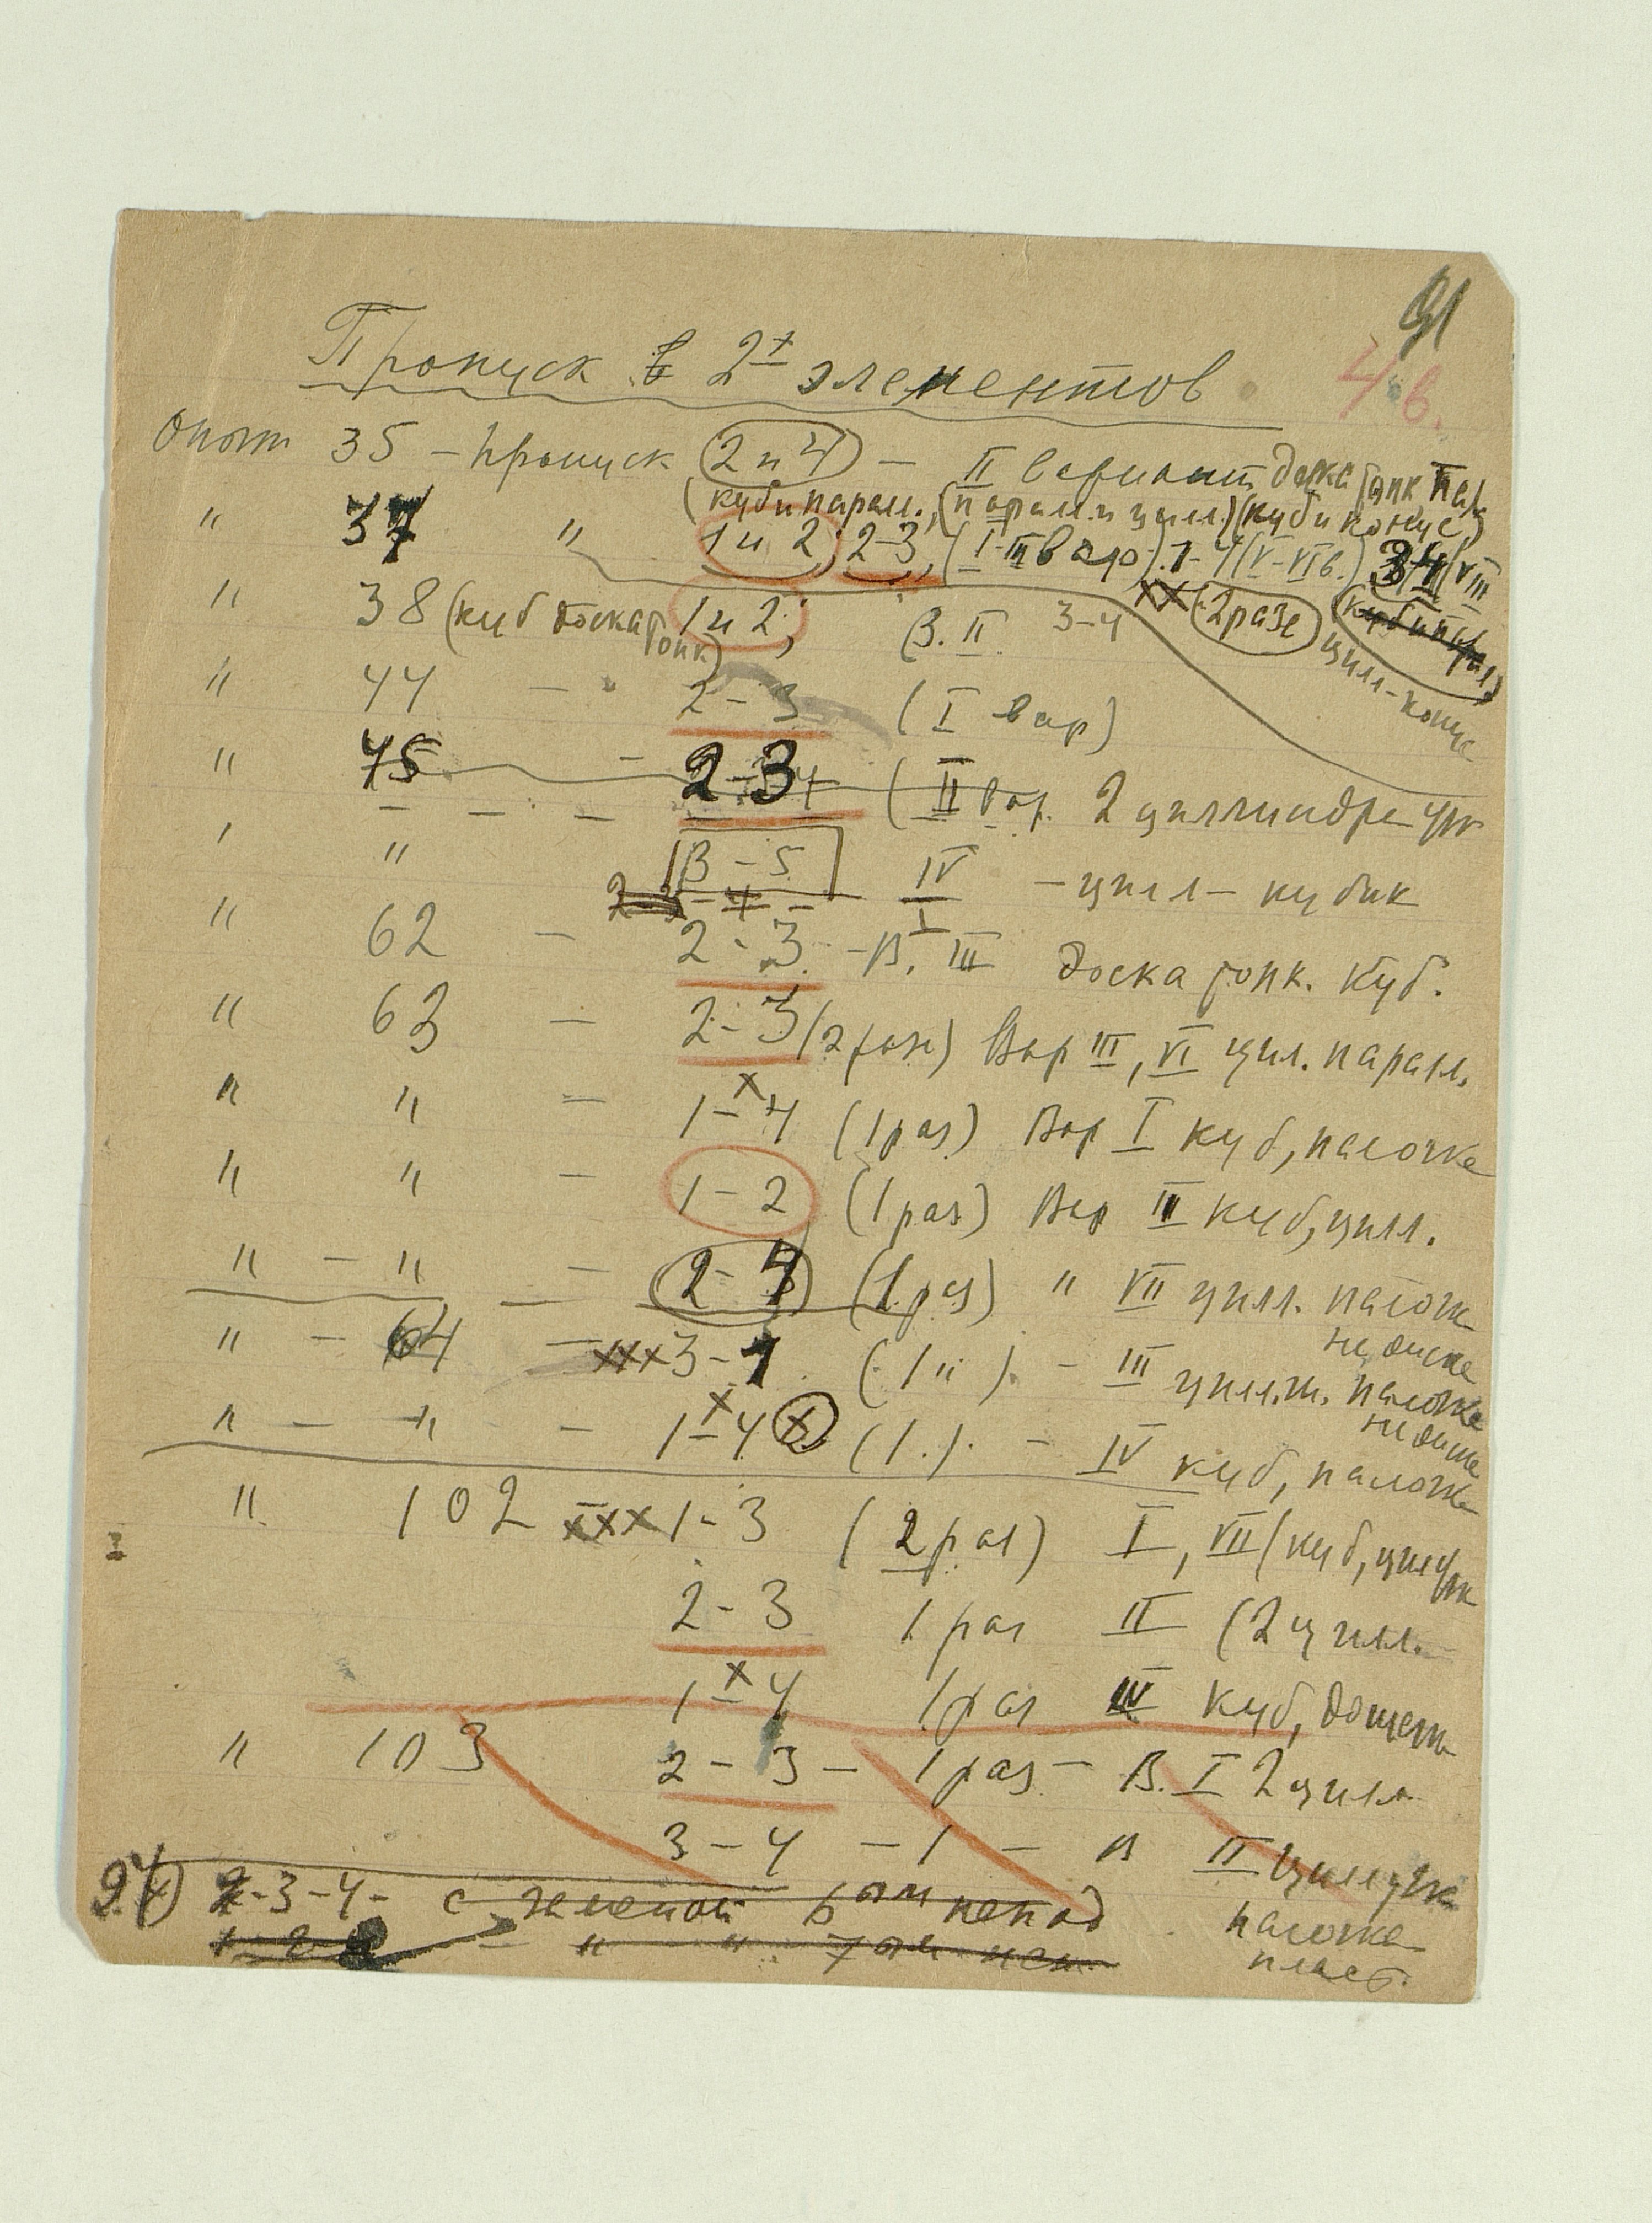 91
4 в.
Пропуск в 2х элементов
Опыт 35 – пропуск 2 и 4 – II вариант доска тонк пал
(куб и парал., (парал. и цил.) (куб и конус)
" 37 " 1 и 2; 2-3, (I-III вар). 1-4 (V-VI в.) 3-4 (VIII
" 38 (куб доска тонк) 1 и 2; В. II 3-4 хх (2 раза) куб и парал)
цил-конус
" 44 – 2-3 (I вар)
" 45 – 2-3 (II вар. 2 циллиндра
" " 3-5 IV – цил – кубик
" 62 – 2-3 – В. III доска тонк. куб.
" 63 – 2-3 (2 раз) Вар III, VI цил. парал.
" " – 1-4 х (1 раз) Вар I куб, палочка
" " – 1-2 (1 раз) Вар III куб, цил.
" – " – 2-4 (1 раз) " VII цил. палочк
на диске
" – 64 – ххх 3-1 (1 ") – III палочка
" – " – 1-4 х (1.) – IV куб, палочк
" 102 ххх 1-3 (2 раз) I, VII (куб, цил
2-3 1 раз II (2 цил.
1-4 х 1 раз IV куб, дощеч
" 103 2-3 – 1 раз – В. I 2 цил.
3-4 – 1 – В II цил
палочка
пласт.
2-3-4 – с 6ой
" " 7ой